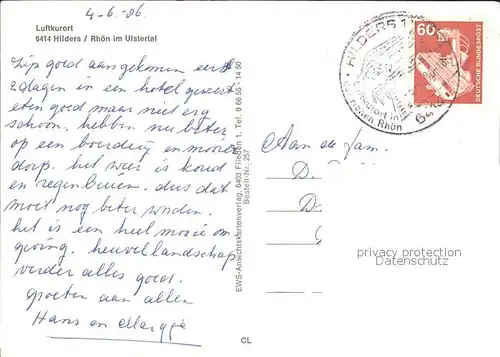 4-6-86
Luftkurort
6414 Hilders / Rhön im Ulstertal
Zijn goed aangekomen eerst
2 dagen in een hotel geweest
eten goed maar niet erg
schoon. hebben nu beter
op een boerderij en mooier
dorp. het weer is koud
en regenbuien. dus dat
moet nog beter worden.
het is een heel mooie om
geving. heuvellandschap
verder alles goed.
groeten aan allen
Hans en Margje
EWS-Ansichtskartenverlag, 6403 Flieden 1, Tel. 0 66 55 - 14 50
Bestell-Nr. 257
CL
HILDERS 1
Luftkurort in
Rhön
64
60
DEUTSCHE BUNDESPOST
Aan de fam.
D.
D.
privacy protection
Datenschutz